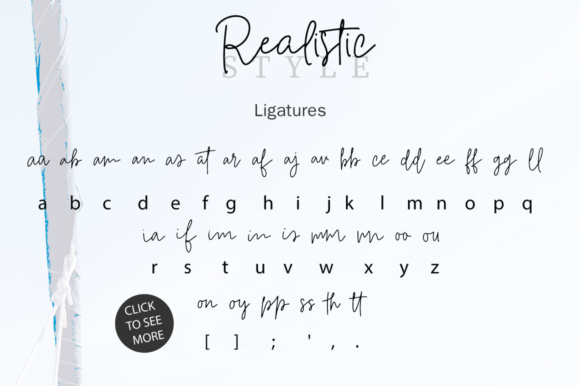 Realistic
STYLE
Ligatures
aa ab am an as at ar af aj av bb ce dd ee ff gg ll
a b c d e f g h i j k l m n o p q
ia if im in is mm nn oo ou
r s t u v w x y z
on oy pp ss th tt
[ ] ; ' , .
CLICK
TO SEE
MORE